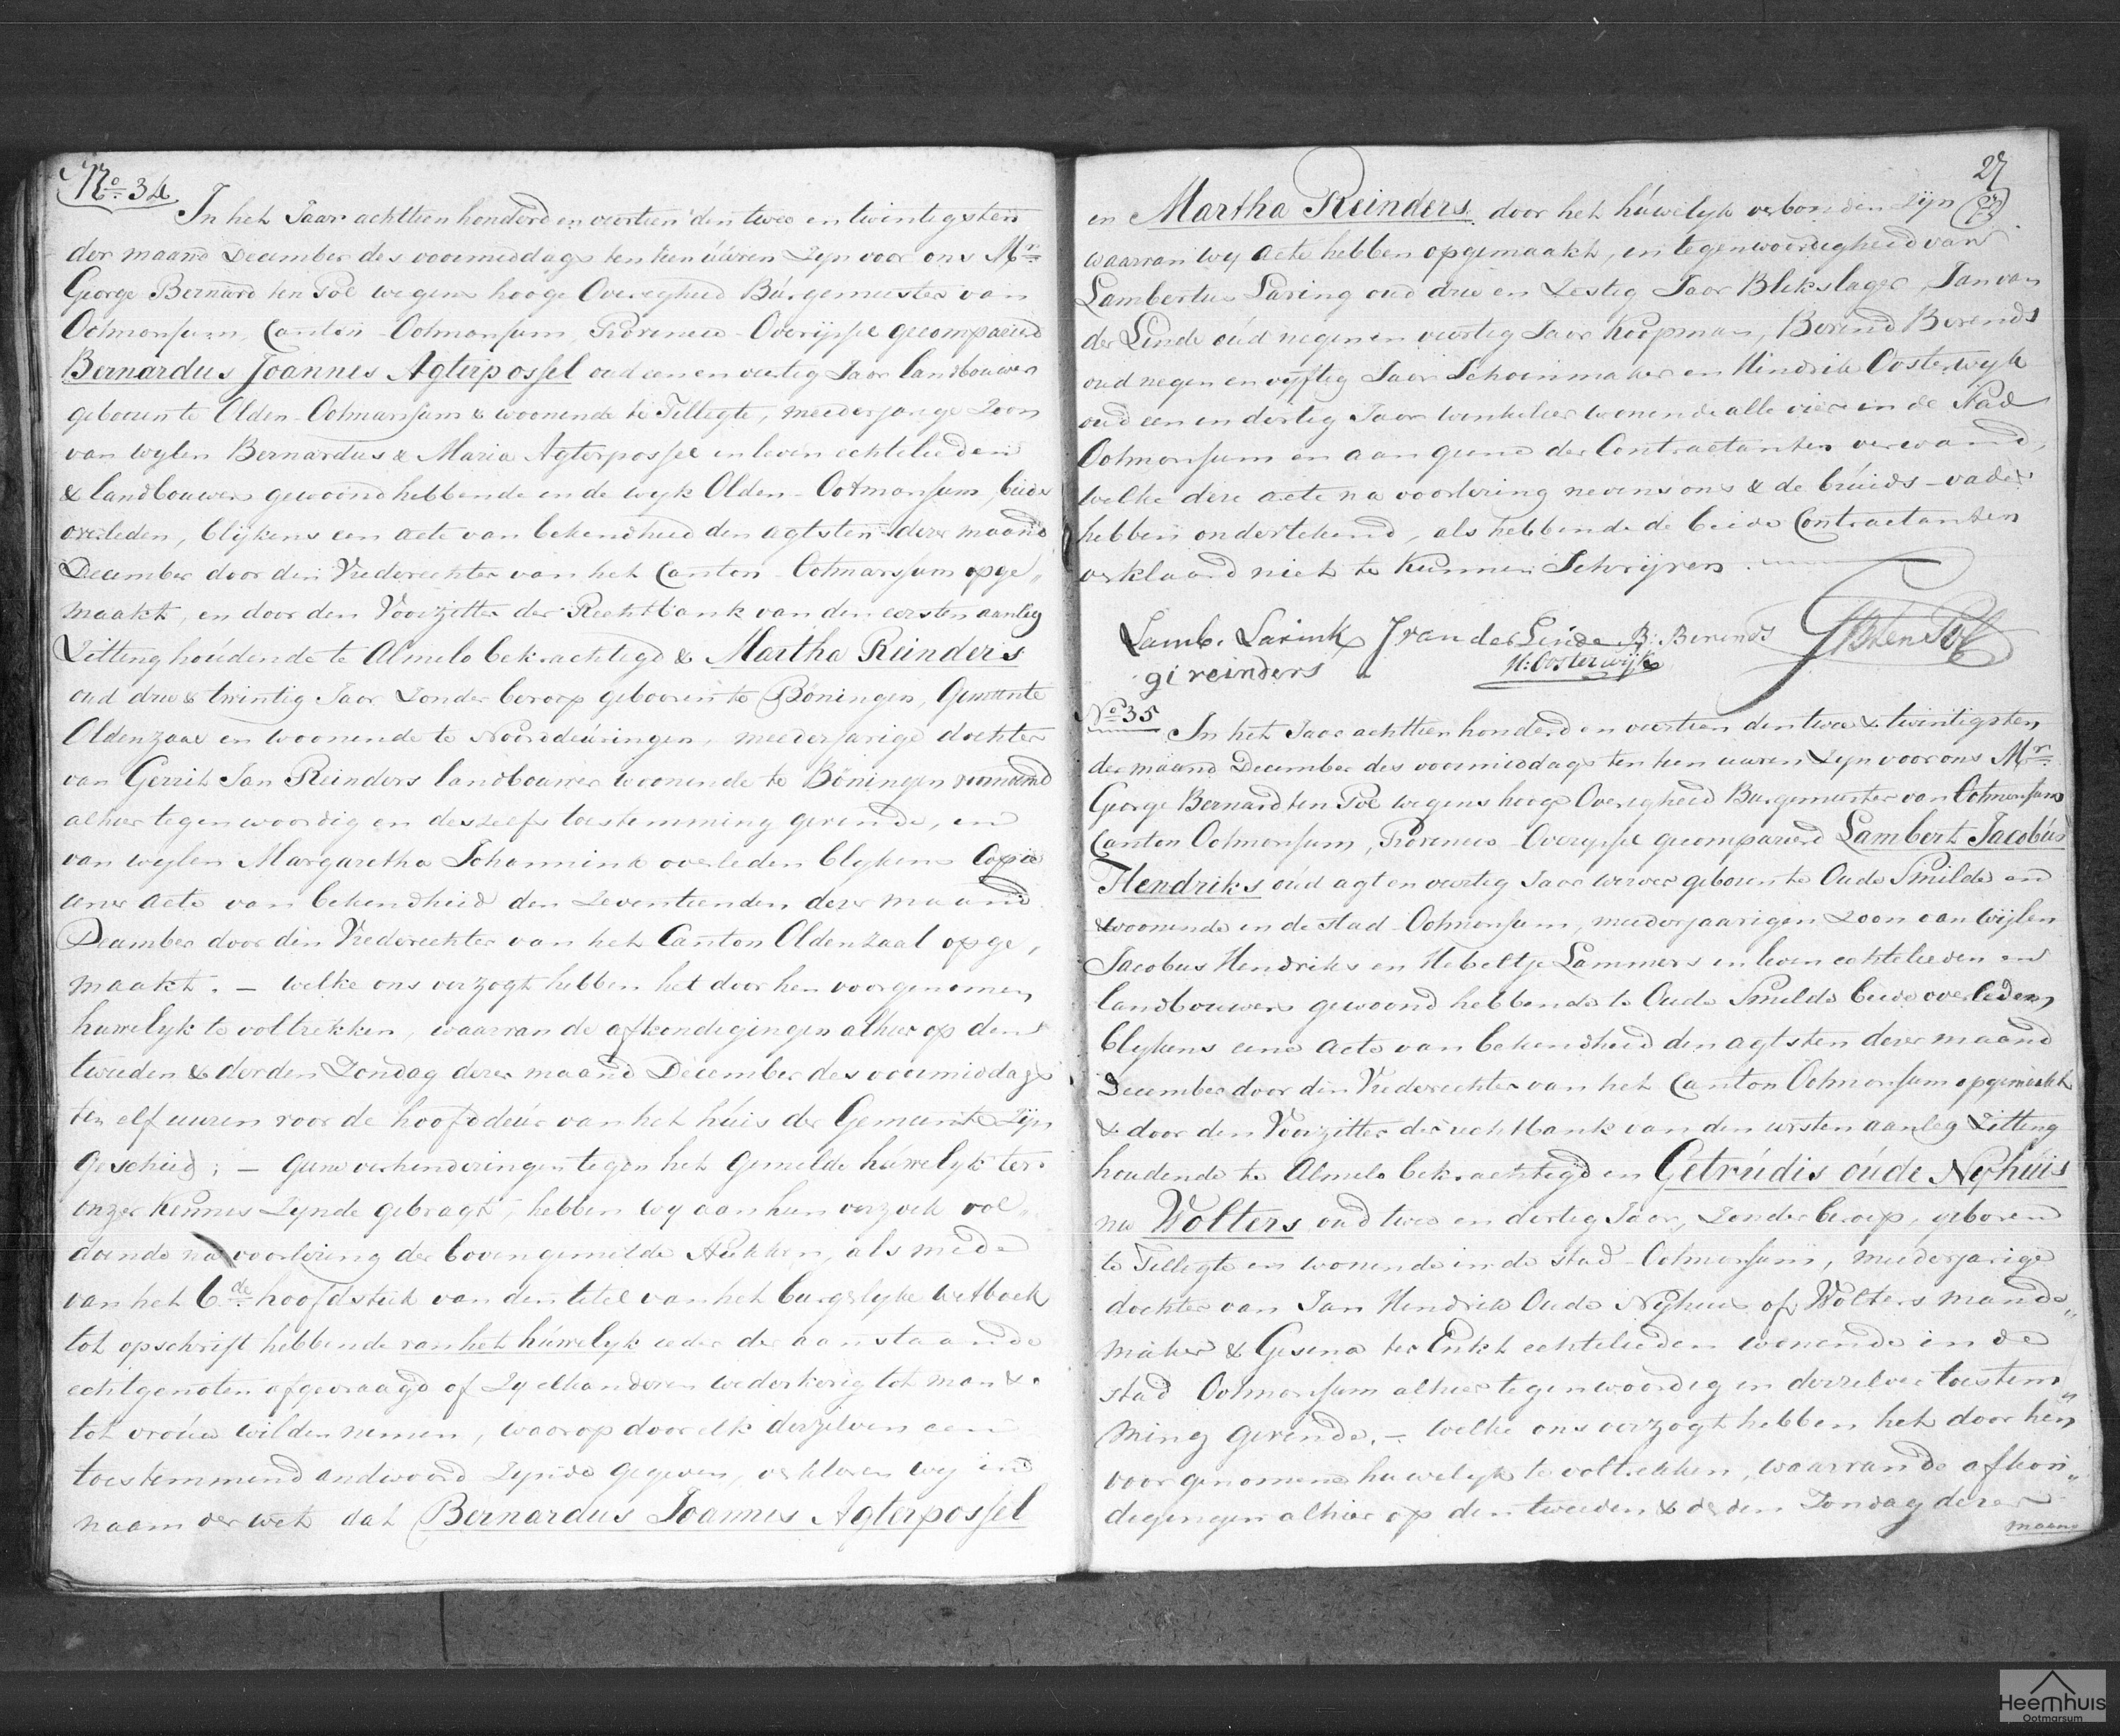 No. 34
In het Jaar achttien honderd en veertien den twee en twintigsten
der maand December des voormiddags ten tien uúren Zyn voor ons Mr.
George Bernard ten Pol wegens hooge Overigheid Búrgemeester van
Ootmarssum, Canton Ootmarssum, Provincie Overijssel gecompareerd
Bernardus Joannes Agterpossel oud een en veertig Jaar landbouwer
gebooren te Olden-Ootmarssum & woonende te Tillegte, meederjarige Zoon
van wylen Bernardus & Maria Agterpossel in leven echtelieden
& landbouwers gewoond hebbende in de wyk Olden-Ootmarssum, beide
overleden, blijkens een acte van bekendheid den agtsten dezer maand
December door den Vrederechter van het Canton Ootmarssúm opge„
maakt, en door den Voorzitter der Rechtbank van den eersten aanleg
Zitting hoúdende te Almelo bekrachtigd & Martha Reinders
oud drie & twintig Jaar Zonder beroep gebooren te Böningen, Gemeente
Oldenzaal en woonende te Noorddeúringen, meederjarige dochter
van Gerrit Jan Reinders landbouwer woonende te Böningen
alhier tegenwoordig en deszelfs toestemming gevende, en
van wylen Margaretha Schonnink overleden blykens Copie
ener acte van bekendheid den Zeventienden dezer maand
December door den Vrederechter van het Canton Oldenzaal opge„
maakt. — welke ons verzogt hebben het door hen voorgenomen
huwelyk te voltrekken, waarvan de afkondigingen alhier op den
tweeden & derden Zondag dezer maand December des voormiddags
ten elf uuren voor de hoofddeúr van het húis der Gemeente Zijn
geschied; — geene verhinderingen tegen het gemelde húwelyk ter
onzer kennis Zynde gebragt, hebben wy aan hun verzoek vol„
doende na voorlezing der bovengemelde Stukken, als mede
van het 6de hoofdstuk van den titel van het burgerlyke wetboek
tot opschrift hebbende van het húwelyk ieder der aanstaande
echtgenoten afgevraagd of Zy elkanderen wederkerig tot man &
tot vroúw wilden nemen, waarop door elk derzelven een
toestemmend andwoord Zynde gegeven, verklaren wy in
naam der wet dat Bernardus Joannes Agterpossel
27
en Martha Reinders door het húwelyk verbonden Zijn
waarvan wy acte hebben opgemaakt, in tegenwoordigheid van
Lambertus Laring oud drie en Zestig Jaar Blikslager, Jan van
der Linde oúd negen en veertig Jaar Koopman, Berend Berends
oud negen en vyftig Jaar Schoenmaker en Hindrik Oosterwyk
oud een en dertig Jaar winkelier wonende alle vier in de Stad
Ootmarssum en aan geene der Contractanten verwand,
welke deze acte na voorlezing nevens ons & de brúids-vader
hebben ondertekend, als hebbende de beide Contractanten
verklaard niet te kunnen Schrijven.
Lamb. Larink J van der Linde B: Berends GB ten Pol
gi reinders H: Oosterwijk
No. 35
In het Jaar achttien honderd en veertien den twee & twintigsten
der maand December des voormiddags ten tien uuren Zyn voor ons Mr.
George Bernard ten Pol wegens hooge Overigheid Burgemeester van Ootmarssum
Canton Ootmarssum, Provincie Overyssel gecompareerd Lambert Jacobús
Hendriks oúd agt en veertig Jaar verver gebooren te Oude Smilde en
woonende in de stad Ootmarssum, meederjaarigen Zoon van Wijlen
Jacobus Hendriks en Hebeltje Lammers in leven echtelieden en
landbouwers gewoond hebbende te Oude Smilde beide overleden,
blykens eene acte van bekendheid den agtsten dezer maand
December door den Vrederechter van het Canton Ootmarssum opgemaakt
& door den Voorzitter der rechtbank van den eersten aanleg Zitting
houdende te Almelo bekrachtigd en Getrúdis oúde Nyhúis
nu Wolters oud twee en dertig Jaar, Zonder beroep, geboren
te Tillegte en wonende in de stad Ootmarssum, meederjarige
dochter van Jan Hendrik Oude Nyhuis of Wolters mande„
maker & Gesina ter Enkt echtelieden wonende in de
stad Ootmarssum alhier tegenwoordig en derzelver toestem„
ming gevende. — welke ons verzogt hebben het door hen
voorgenomene huwelyk te voltrekken, waarvan de afkon„
digingen alhier op den tweeden & derden Zondag dezer
maand
Heemhuis
Ootmarsum